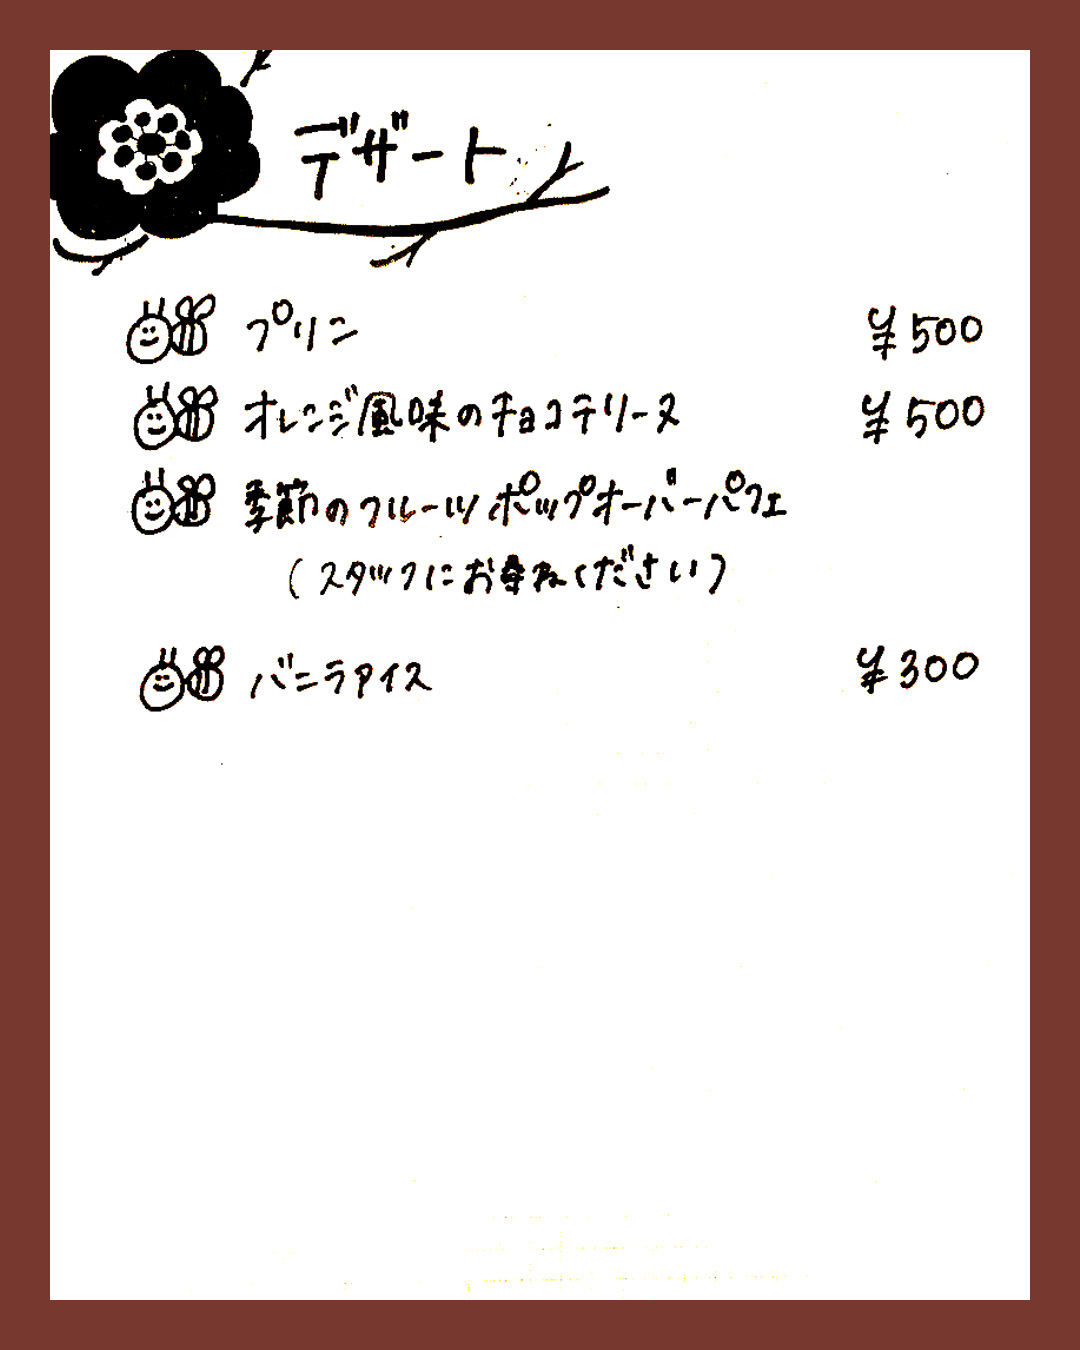 デザート
プリン ¥500
オレンジ風味のチョコテリーヌ ¥500
季節のフルーツポップオーバーパフェ
(スタッフにお尋ねください)
バニラアイス ¥300